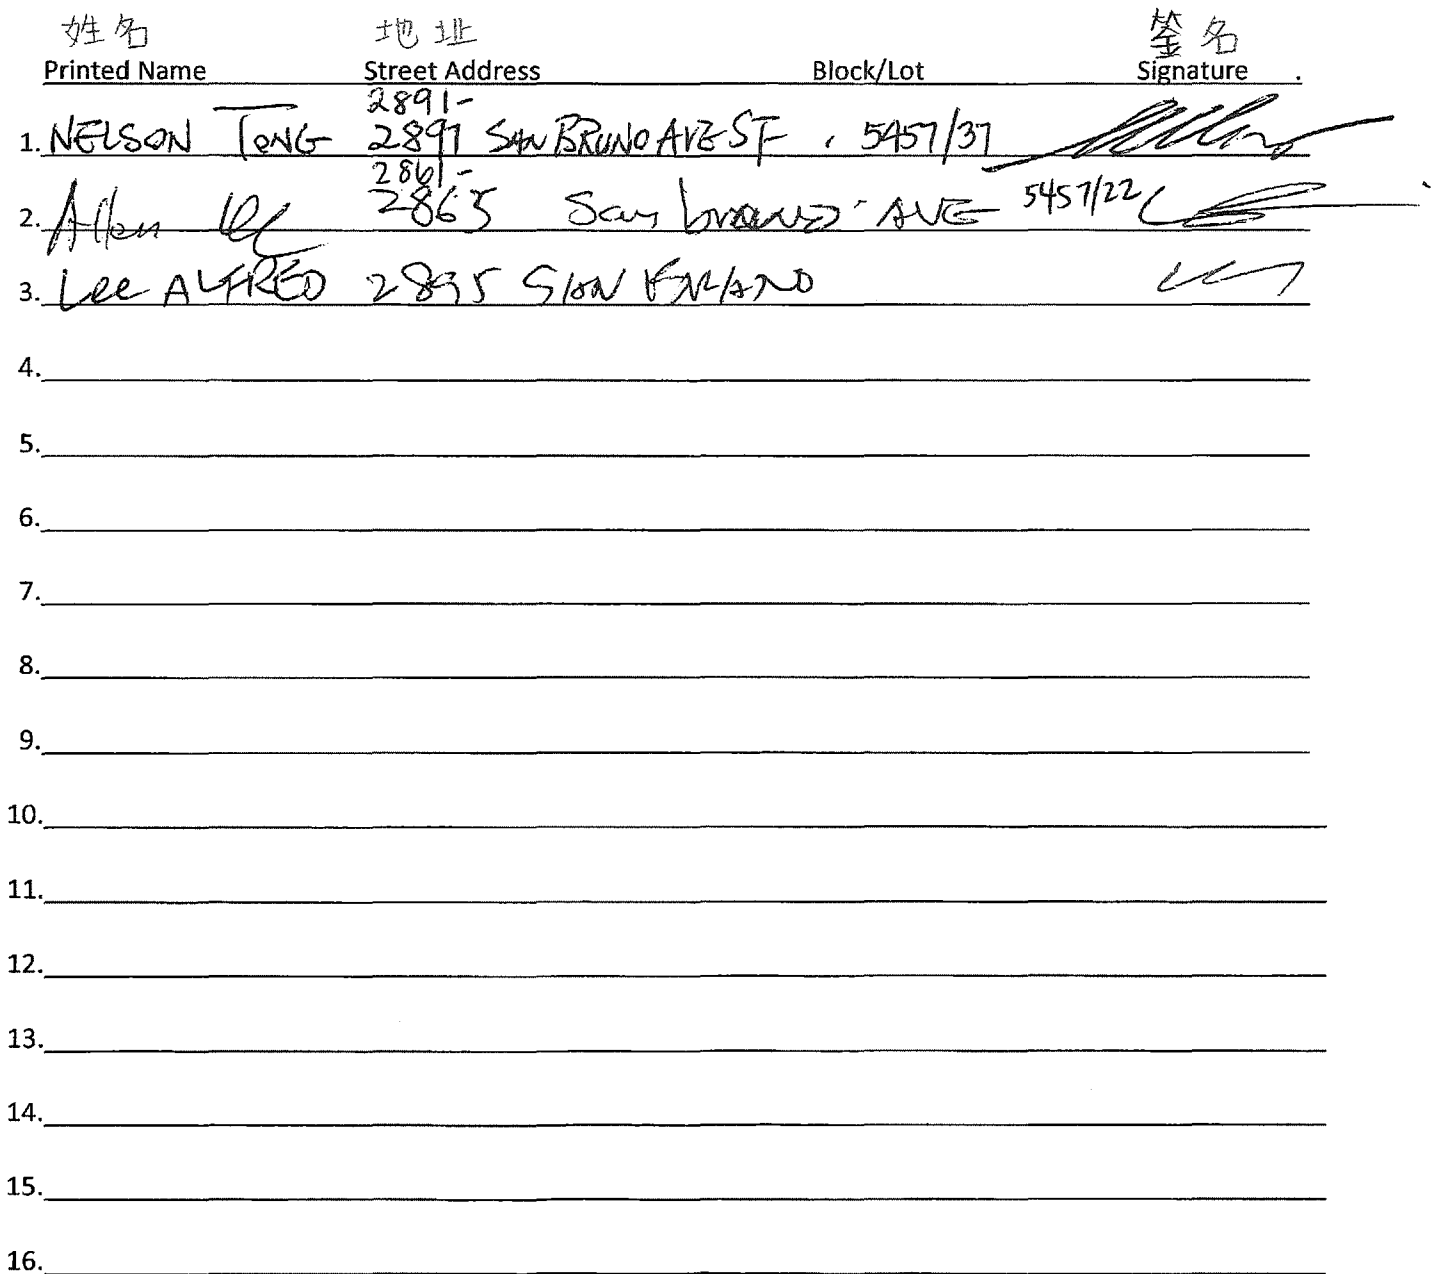 姓名 地址 签名
Printed Name Street Address Block/Lot Signature
2891-
1. NELSON TONG 2897 SAN BRUNO AVE SF . 5457/37
2861-
2. Allen 2865 San bruno AVE 5457/22
3. Lee ALFRED 2895 SAN
4.
5.
6.
7.
8.
9.
10.
11.
12.
13.
14.
15.
16.